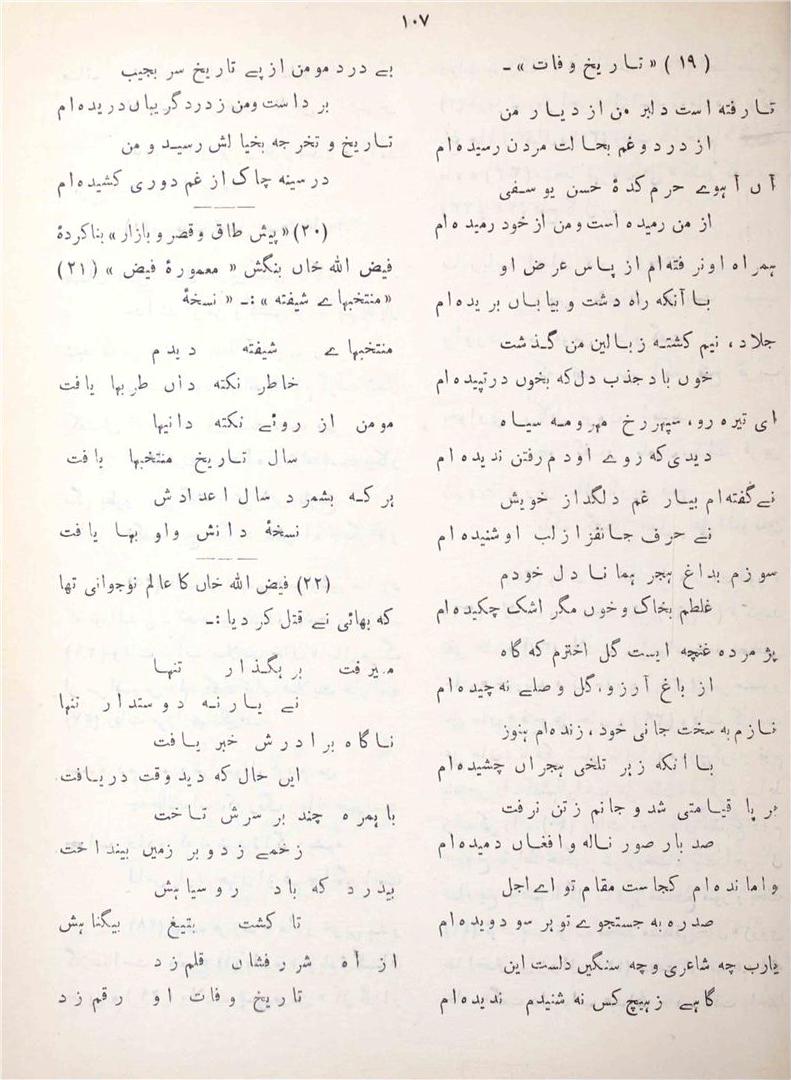 ۱۰۷
(۱۹) «تاریخ وفات» ـ
تا رفته است دلبر من از دیار من
از درد و غم بحالت مردن رسیده ام
آں آہوے حرم کدۂ حسن یوسفی
از من رمیدہ است و من از خود رمیدہ ام
ہمراہ او نرفتہ ام از پاس عرض او
با آنکہ راہ دشت و بیاباں بریدہ ام
جلاد، نیم کشتہ ز بالین من گذشت
خوں باد جذب دل کہ بخوں در تپیدہ ام
ای تیرہ رو، سپہر رخ مہر و مہ سیاہ
دیدی کہ روے او دم رفتن ندیدہ ام
نے گفتہ ام بیار غم دلگداز خویش
نے حرف جانفزا ز لب او شنیدہ ام
سوزم بداغ ہجر ہمانا دل خودم
غلطم بخاک و خوں مگر اشک چکیدہ ام
پژمردہ غنچہ ایست گل اخترم کہ گاہ
از باغ آرزو، گل و صلے نہ چیدہ ام
نازم بہ سخت جانی خود، زندہ ام ہنوز
با آنکہ زہر تلخی ہجراں چشیدہ ام
بر پا قیامتی شد و جانم ز تن نرفت
صد بار صور نالہ و افغاں دمیدہ ام
واماندہ ام کجاست مقام تو اے اجل
صدرہ بہ جستجوے تو ہر سو دویدہ ام
یارب چہ شاعری و چہ سنگیں دلست این
گاہے ز ہیچ کس نہ شنیدم ندیدہ ام
بے درد مومن از پے تاریخ سر بجیب
برداست و من ز درد گریباں دریدہ ام
تاریخ و تخرجہ بخیالش رسید و من
در سینہ چاک از غم دوری کشیدہ ام
(۲۰) «پیش طاق و قصر و بازار» بنا کردۂ
فیض اللہ خاں بنگش «معمورۂ فیض» (۲۱)
«منتخبہاے شیفتہ» :۔ «نسخۂ
منتخبہاے شیفتہ دیدم
خاطر نکتہ داں طربہا یافت
مومن از روئے نکتہ دانیہا
سال تاریخ منتخبہا یافت
ہر کہ بشمرد سال اعدادش
نسخۂ دانش و او بہا یافت
(۲۲) فیض اللہ خاں کا عالم نوجوانی تھا
کہ بھائی نے قتل کر دیا :۔
میرفت برہگذار تنہا
نے یار نہ دوستدار تنہا
ناگاہ برادرش خبر یافت
ایں حال کہ دید وقت دریافت
با ہمرہ چند بر سرش تاخت
زخمے زد و بر زمیں بینداخت
بیدرد کہ باد رو سیاہش
تا کشت بتیغ بیگناہش
از آہ شرر فشاں قلم زد
تاریخ وفات او رقم زد